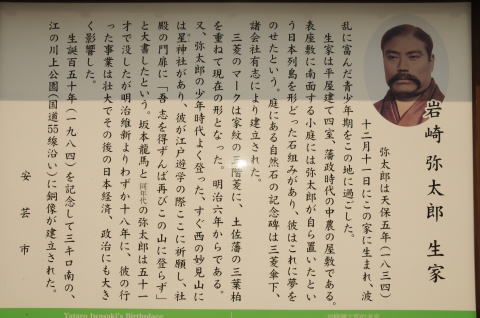 岩崎 弥太郎 生家
弥太郎は天保五年(一八三四)
十二月十一日にこの家に生まれ、波
乱に富んだ青少年期をこの地に過ごした。
生家は平屋建て四室、藩政時代の中農の屋敷である。
表座敷に南面する小庭には弥太郎が自ら置いたとい
う日本列島を形どった石組みがあり、彼はこれに夢を
のせたという。庭にある自然石の記念碑は三菱傘下、
諸会社有志により建立された。
三菱のマークは家紋の三階菱に、土佐藩の三葉柏
を重ねて現在の形となった。明治六年からである。
又、弥太郎の少年時代よく登った、すぐ西の妙見山に
は星神社があり、彼が江戸遊学の際ここに祈願し、社
殿の門扉に「吾志を得ずんば再びこの山に登らず」
と大書したという。坂本龍馬と同年代の弥太郎は五十一
才で没したが明治維新よりわずか十八年に、彼の行
った事業は壮大でその後の日本経済、政治にも大き
く影響した。
生誕百五十年(一九八四)を記念して三キロ南の、
江の川上公園(国道55線沿い)に銅像が建立された。
安芸市
Yataro Iwasaki's Birthplace